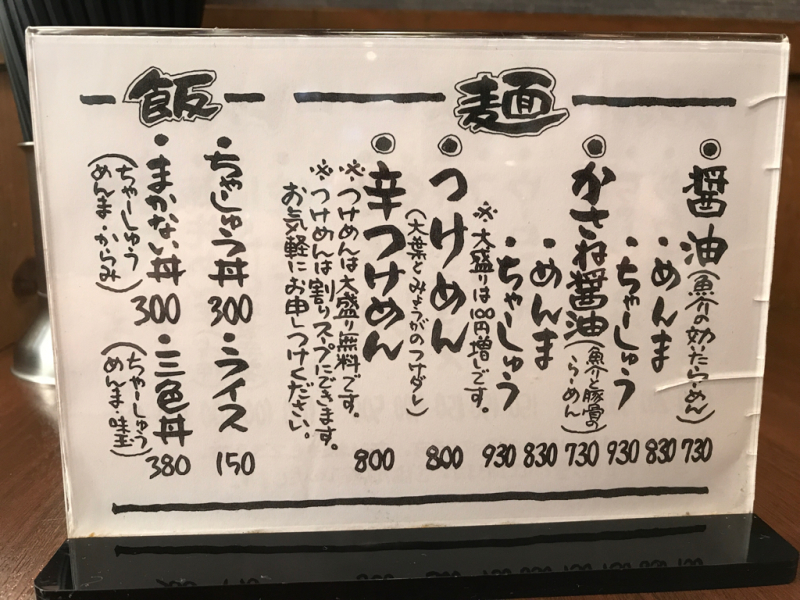 麺
醤油(魚介の効いたらーめん) 730
・めんま 830
・ちゃーしゅう 930
かさね醤油(魚介と豚骨のらーめん) 730
・めんま 830
・ちゃーしゅう 930
※大盛りは100円増しです。
つけめん 800
(大葉とみょうがのつけダレ)
辛つけめん 800
※つけめんは大盛り無料です。
※つけめんは割りスープにできます。
お気軽にお申しつけください。
飯
・ちゃーしゅう丼 300
・ライス 150
・まかない丼 300
(ちゃーしゅう
めんま・からみ)
・三色丼 380
(ちゃーしゅう
めんま・味玉)